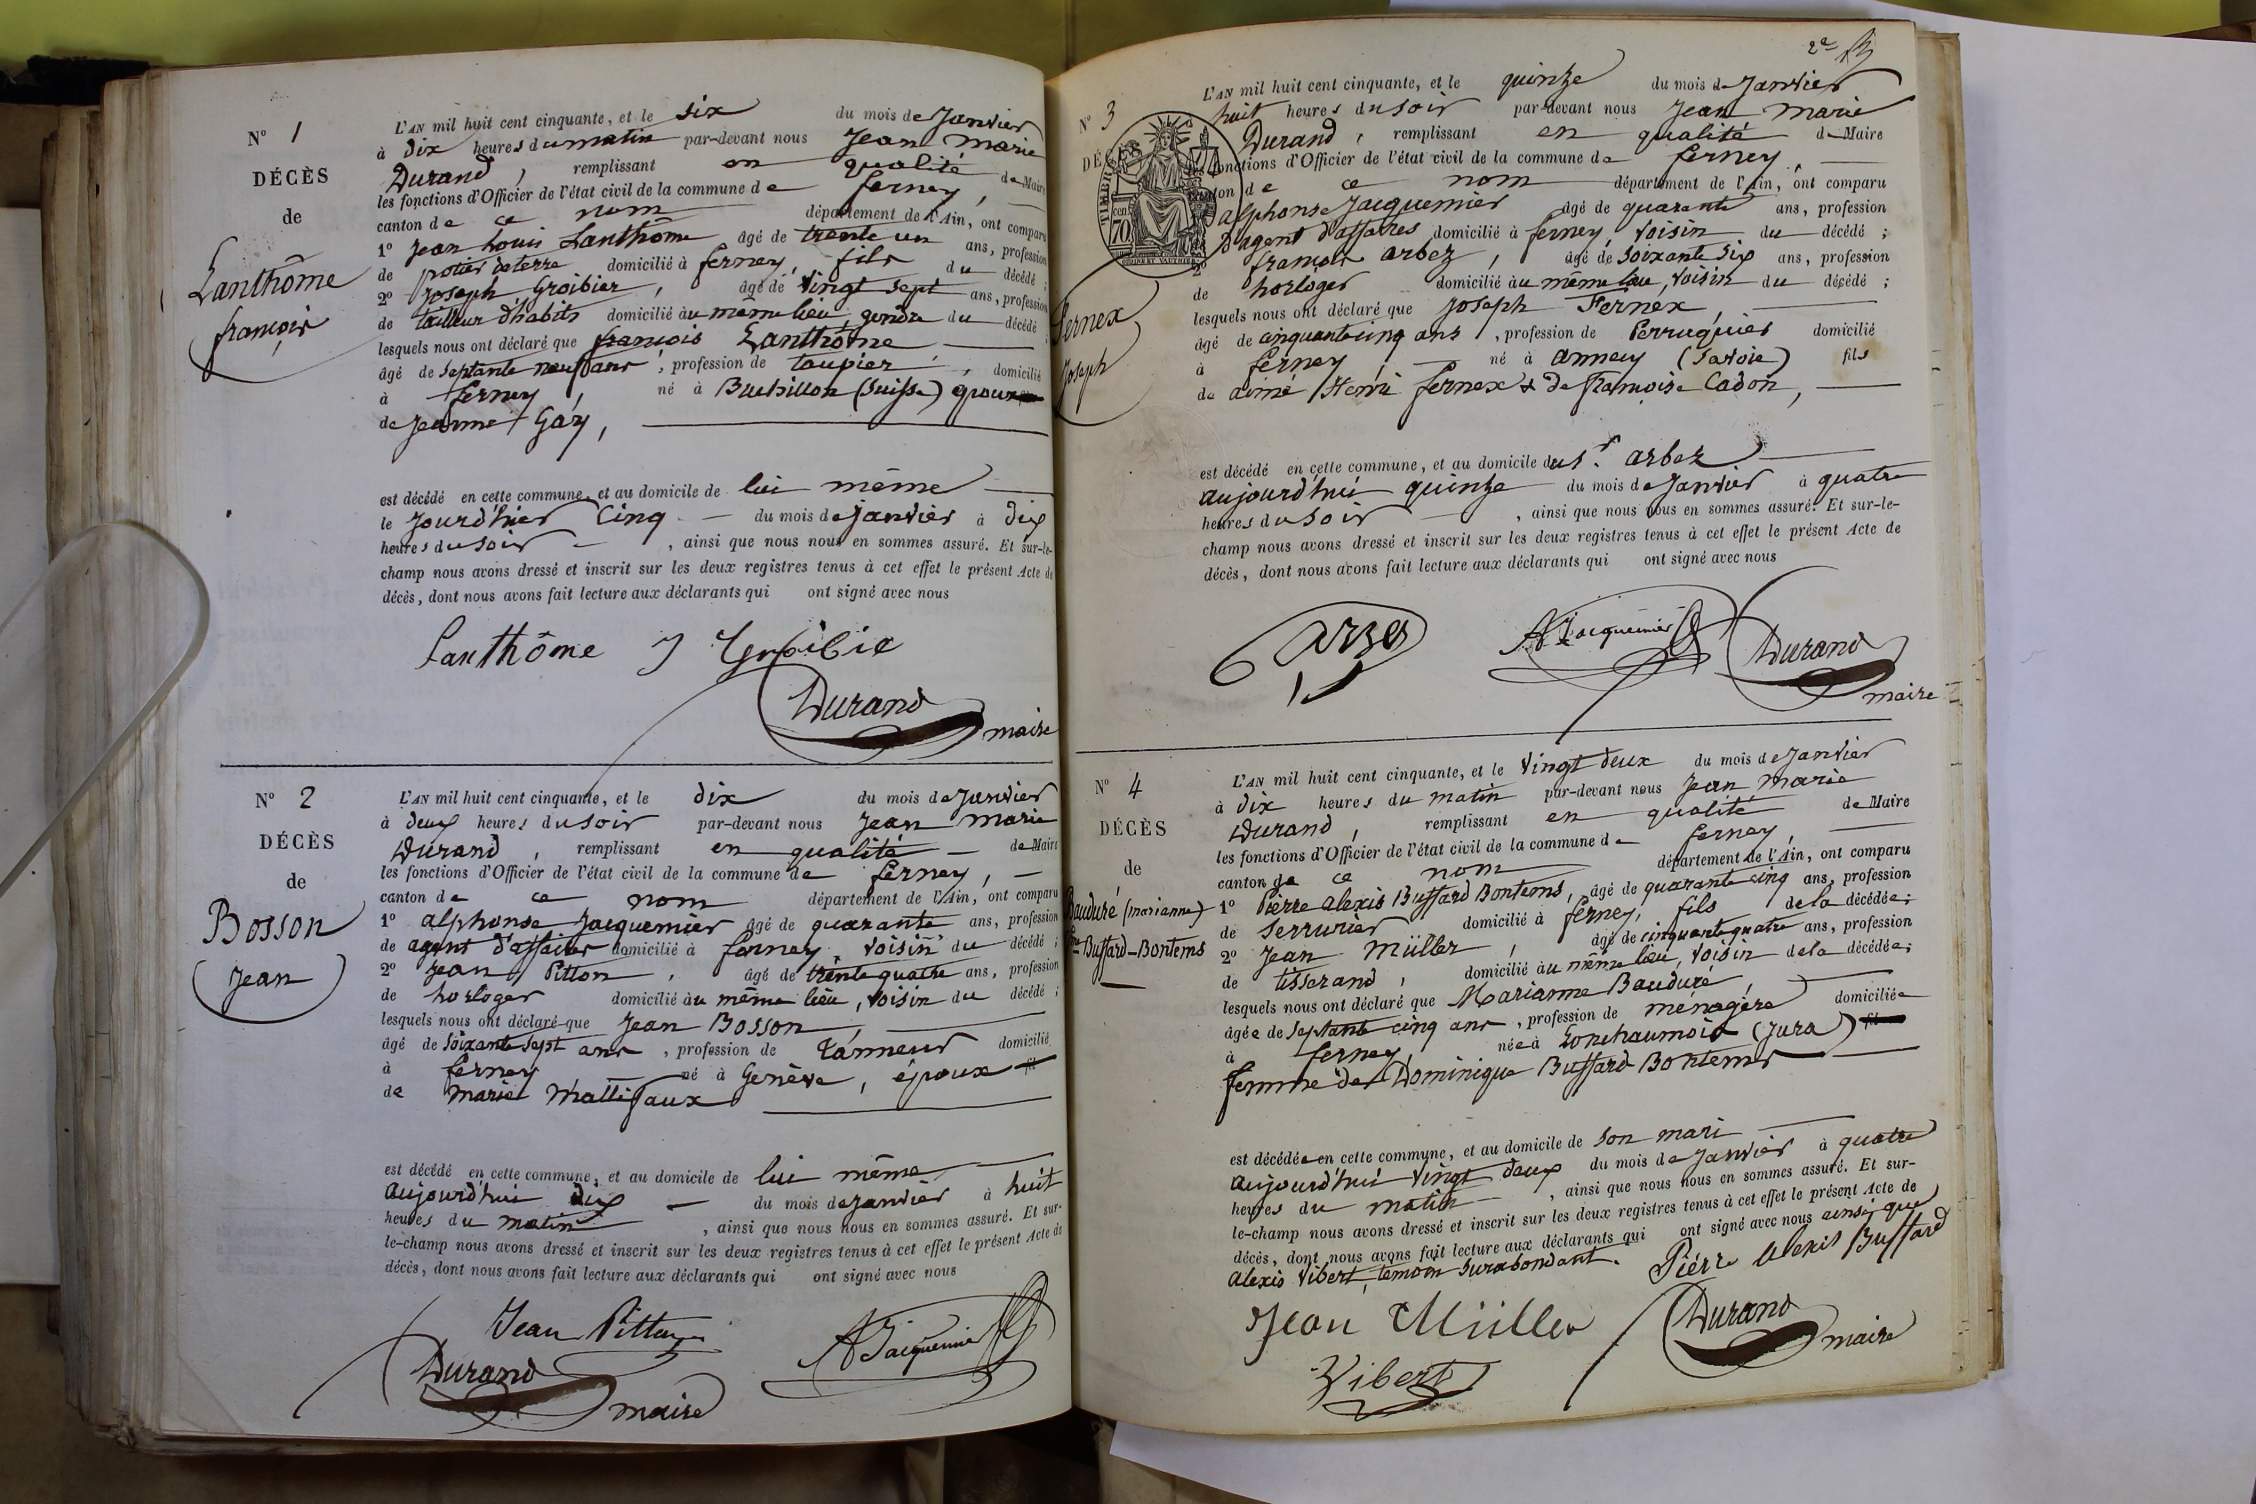 N° 1
DÉCÈS
de
Lanthôme
françois
L'AN mil huit cent cinquante, et le six du mois de Janvier
à dix heures du matin par-devant nous Jean Marie
Durand, remplissant en qualité de Maire
les fonctions d'Officier de l'état civil de la commune de ferney,
canton de ce nom département de l'Ain, ont comparu
1° Jean Louis Lanthôme âgé de trente un ans, profession
de potier de terre domicilié à ferney, fils du décédé ;
2° Joseph Groibier, âgé de vingt sept ans, profession
de tailleur d'habits domicilié au même lieu, gendre du décédé ;
lesquels nous ont déclaré que françois Lanthôme
âgé de septante neuf ans, profession de toupier, domicilié
à ferney né à Bursillon (Suisse) époux
de Jeanne Gay,
est décédé en cette commune, et au domicile de lui même
le jourd'hier cinq du mois de Janvier à dix
heures du soir, ainsi que nous nous en sommes assuré. Et sur-le-
champ nous avons dressé et inscrit sur les deux registres tenus à cet effet le présent Acte de
décès, dont nous avons fait lecture aux déclarants qui ont signé avec nous
Lanthôme J Groibie
Durand
maire
N° 2
DÉCÈS
de
Bosson
(Jean)
L'AN mil huit cent cinquante, et le dix du mois de Janvier
à deux heures du soir par-devant nous Jean Marie
Durand, remplissant en qualité de Maire
les fonctions d'Officier de l'état civil de la commune de ferney,
canton de ce nom département de l'Ain, ont comparu
1° alphonse Jacquemier âgé de quarante ans, profession
de agent d'affaires domicilié à ferney, voisin du décédé ;
2° Jean Pitton, âgé de trente quatre ans, profession
de horloger domicilié au même lieu, voisin du décédé ;
lesquels nous ont déclaré que Jean Bosson,
âgé de soixante sept ans, profession de Tanneur domicilié
à ferney né à Genève, époux
de marie
est décédé en cette commune, et au domicile de lui même,
aujourd'hui dix du mois de Janvier à huit
heures du matin, ainsi que nous nous en sommes assuré. Et sur-
le-champ nous avons dressé et inscrit sur les deux registres tenus à cet effet le présent Acte de
décès, dont nous avons fait lecture aux déclarants qui ont signé avec nous
Jean Pitton
A Jacquemier
Durand
maire
2e
N° 3
TIMBRE
cen. 70
Fernex
Joseph
L'AN mil huit cent cinquante, et le quinze du mois de Janvier
huit heures du soir par-devant nous Jean Marie
Durand, remplissant en qualité de Maire
les fonctions d'Officier de l'état civil de la commune de ferney,
canton de ce nom département de l'Ain, ont comparu
alphonse Jacquemier âgé de quarante ans, profession
D'agent d'affaires domicilié à ferney, voisin du décédé ;
2° françois arbez, âgé de soixante six ans, profession
de horloger domicilié au même lieu, voisin du décédé ;
lesquels nous ont déclaré que Joseph Fernex,
âgé de cinquante cinq ans, profession de Perruquier domicilié
à ferney, né à annecy (Savoie) fils
de aimé Henri fernex & de françoise Cadon,
est décédé en cette commune, et au domicile du Sr. arbez
aujourd'hui quinze du mois de Janvier à quatre
heures du soir, ainsi que nous nous en sommes assuré. Et sur-le-
champ nous avons dressé et inscrit sur les deux registres tenus à cet effet le présent Acte de
décès, dont nous avons fait lecture aux déclarants qui ont signé avec nous
arbez
A Jacquemier
Durand
maire
N° 4
DÉCÈS
de
Bauduré (marianne)
fme Buffard-Bontems
L'AN mil huit cent cinquante, et le vingt deux du mois de Janvier
à dix heures du matin par-devant nous Jean Marie
Durand, remplissant en qualité de Maire
les fonctions d'Officier de l'état civil de la commune de ferney,
canton de ce nom département de l'Ain, ont comparu
1° Pierre alexis Buffard Bontems, âgé de quarante cinq ans, profession
de serrurier domicilié à ferney, fils de la décédée ;
2° Jean Müller, âgé de cinquante quatre ans, profession
de tisserand, domicilié au même lieu, voisin de la décédée ;
lesquels nous ont déclaré que Marianne Bauduré,
âgée de septante cinq ans, profession de ménagère domiciliée
à ferney, née à Lonchaumois (Jura)
femme de Dominique Buffard Bontems
est décédée en cette commune, et au domicile de son mari
aujourd'hui vingt deux du mois de Janvier à quatre
heures du matin, ainsi que nous nous en sommes assuré. Et sur-
le-champ nous avons dressé et inscrit sur les deux registres tenus à cet effet le présent Acte de
décès, dont nous avons fait lecture aux déclarants qui ont signé avec nous ainsi que
alexis Vibert, témoin surabondant. Piérre alexis Buffard
Jean Müller
Durand
maire
Vibert